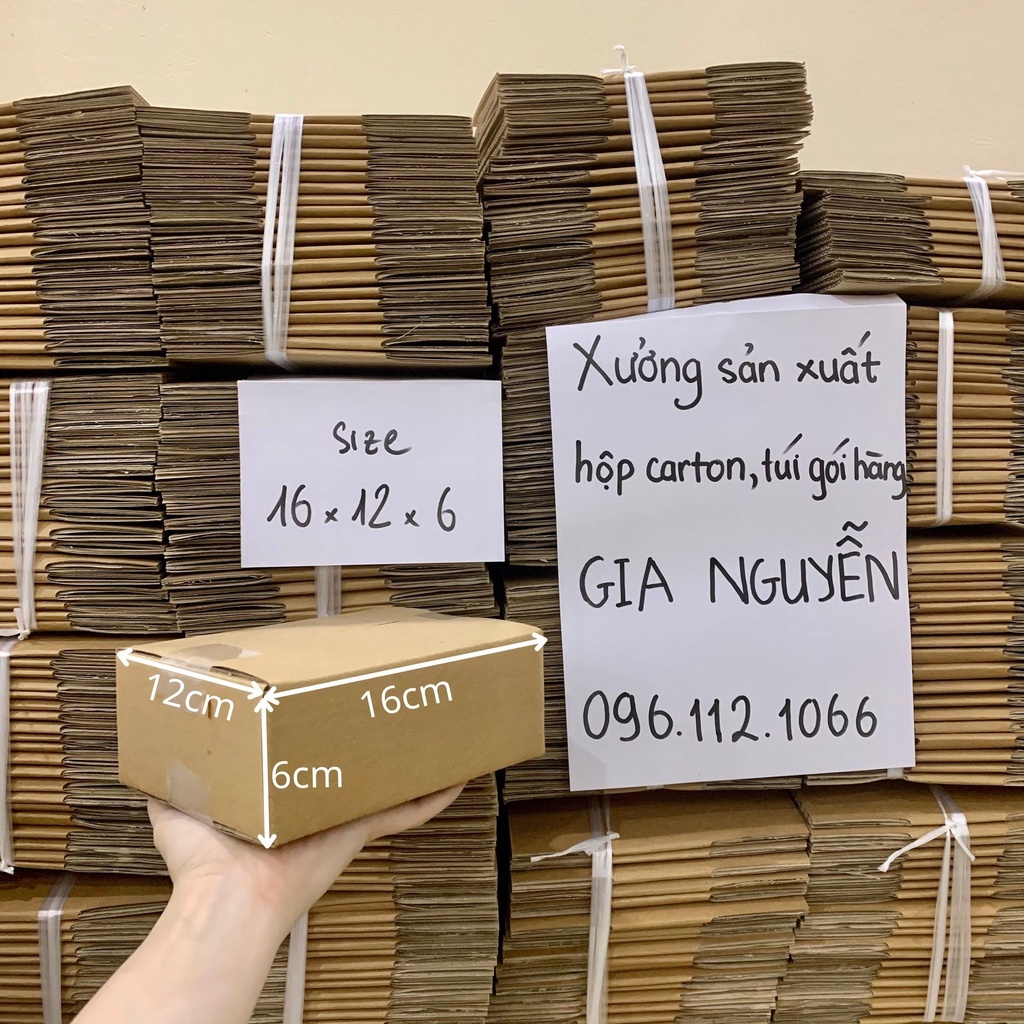 Size
16 x 12 x 6
Xưởng sản xuất
hộp carton, túi gói hàng
GIA NGUYỄN
096.112.1066
12cm
16cm
6cm